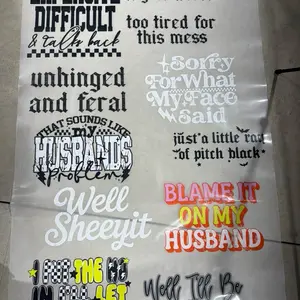 EXPENSIVE
DIFFICULT
& talks back
too tired for
this mess
unhinged
and feral
Sorry
For What
My Face
Said
THAT SOUNDS LIKE
my
HUSBANDS
Problem
just a little ray
of pitch black
Well
Sheeyit
BLAME IT
ON MY
HUSBAND
I PUT THE HO
IN
LET
Well I'll Be